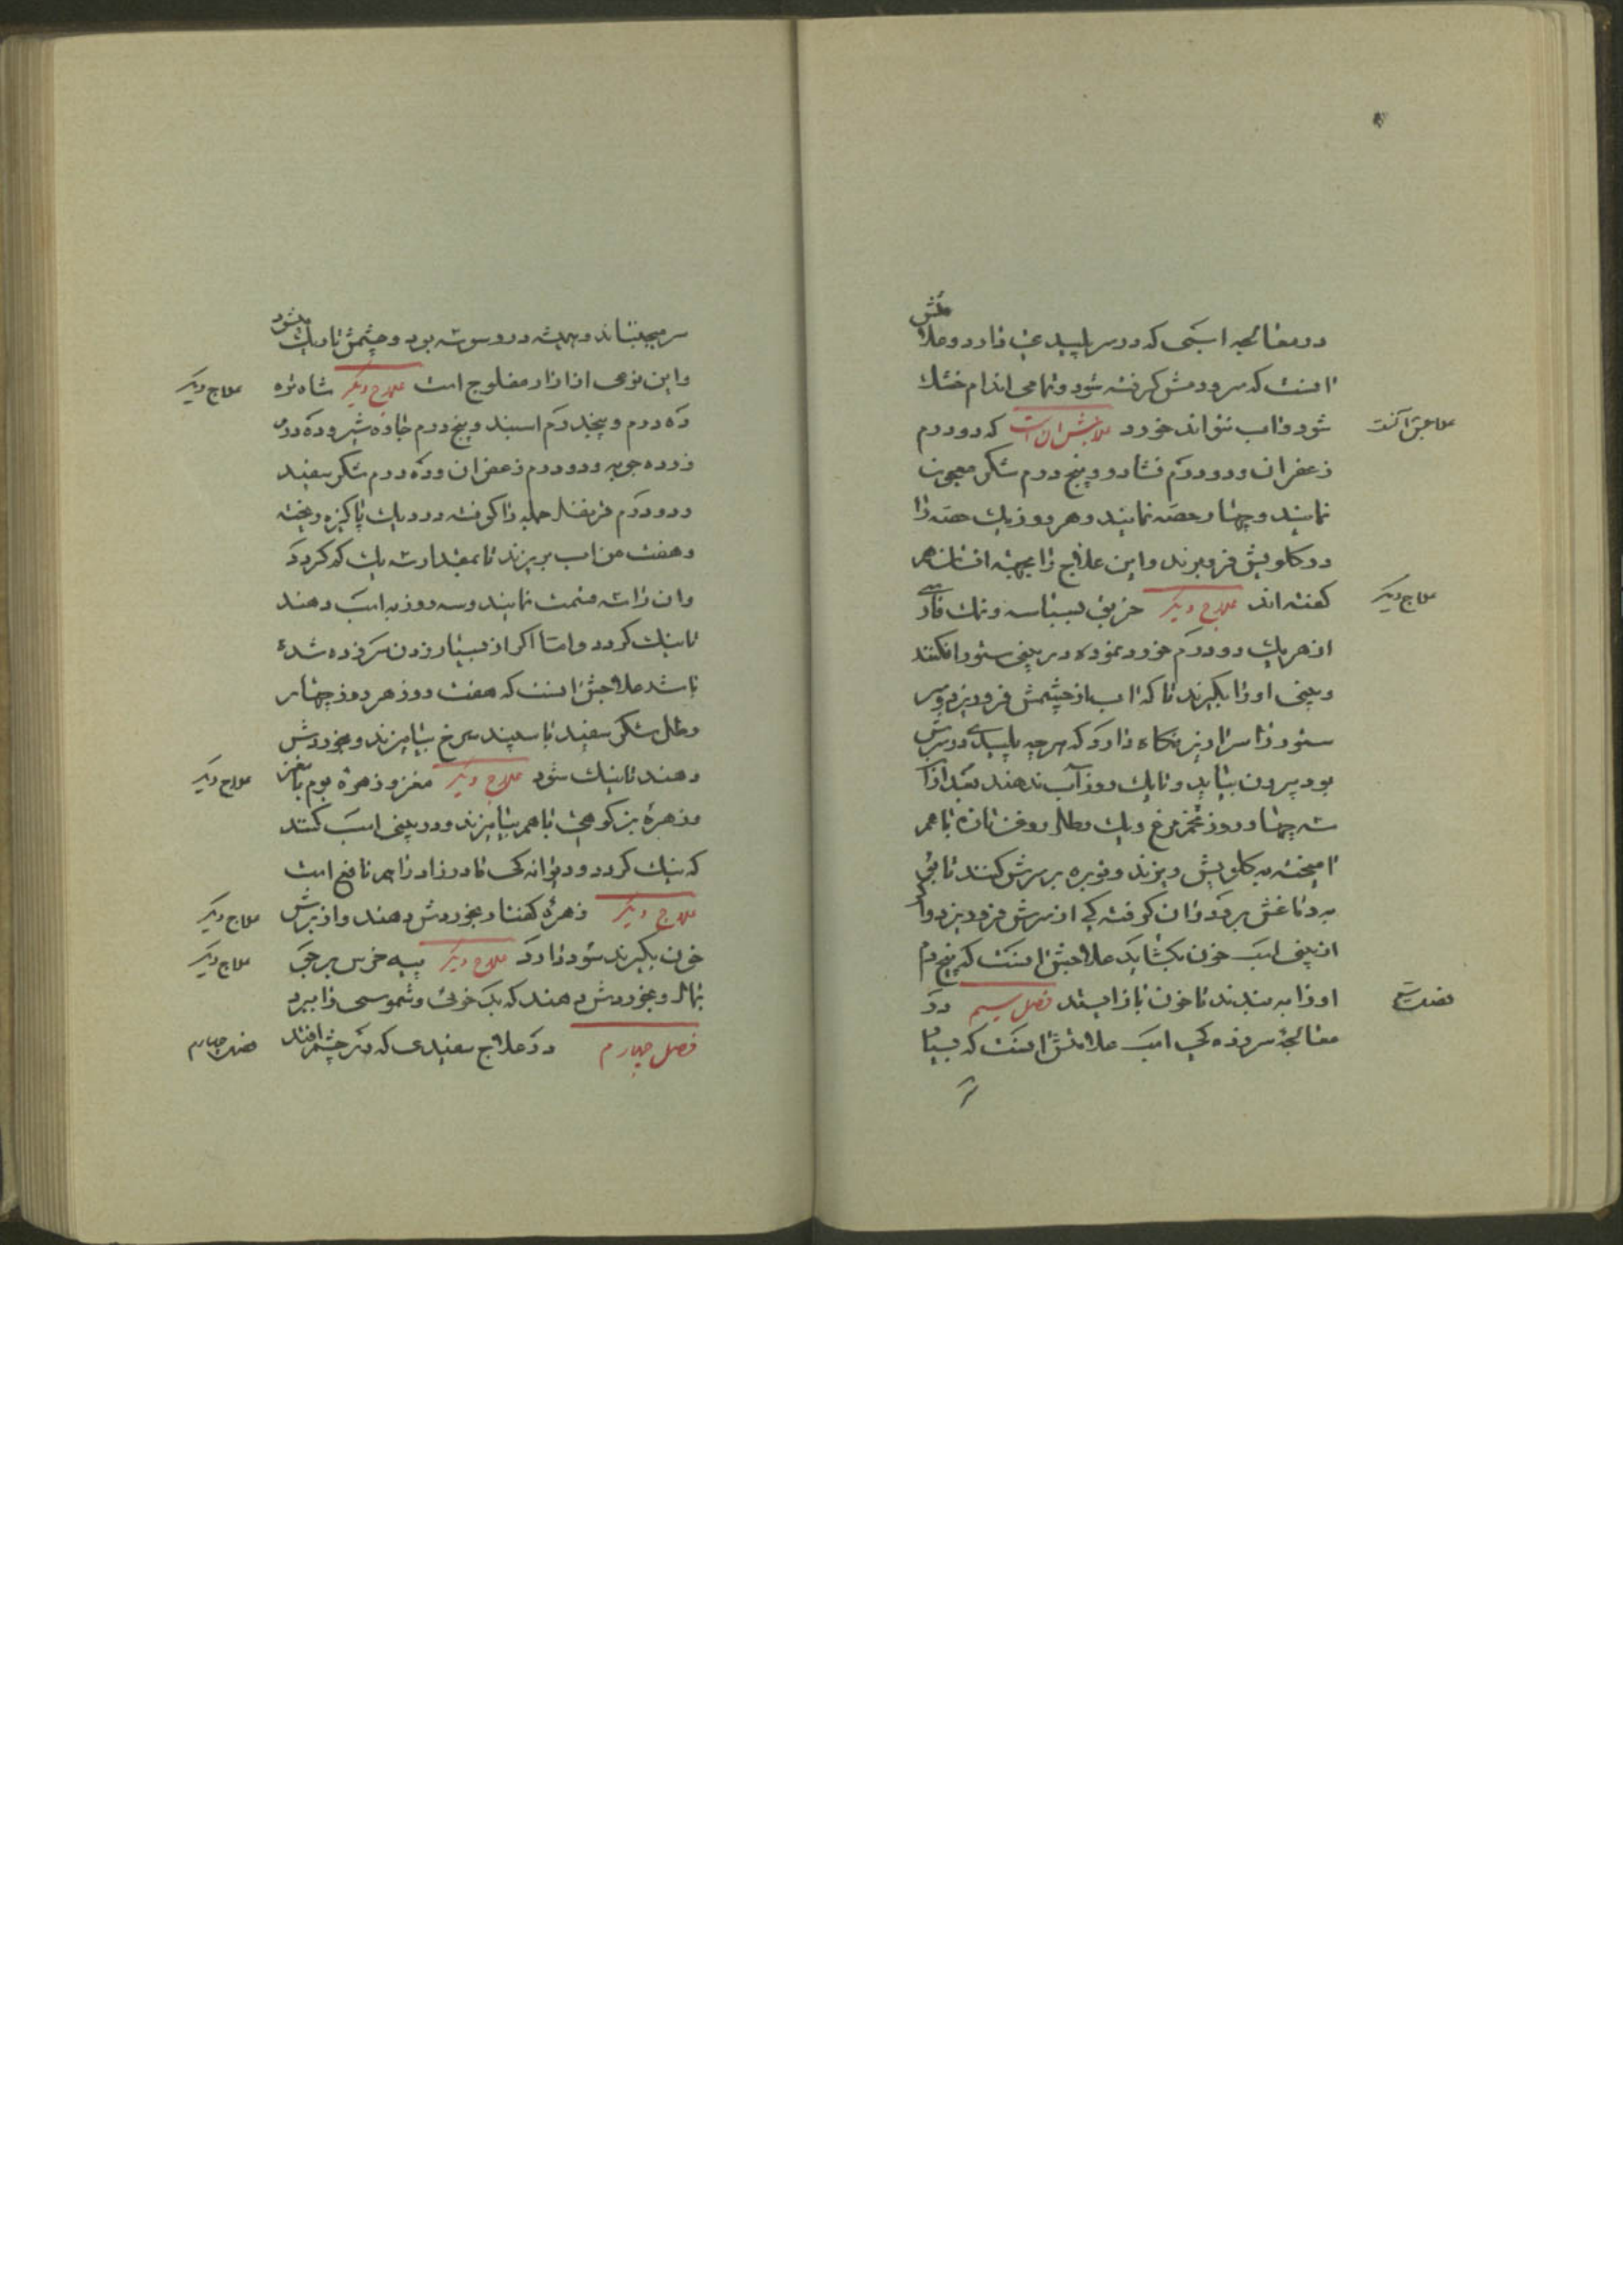 در معالجه اسبی که در سر پلیدی دارد و علامتش
آنست که سر و دمش گرفته شود و تمامی اندام خشک
شود و آب نتواند خورد علاجش آن است که دو درم
زعفران و دو درم و پنج درم شکر معجون
نمایند و چهار حصه نمایند و هر روز یک حصه را
در گلویش فرو برند و این علاج را بجهة
گفته اند علاج دیگر و نمک
از هر یک دو درم خورد نموده در بینی ستور افکنند
و بینی او را بگیرند تا که آب از چشمش فرو ریزد و سر
ستور را سرازیر نگاه دارد که هرچه پلیدی در سرش
بود بیرون بیاید و تا یک روز آب ندهند بعد از آن
سه چهار روز تخم مرغ و یک رطل روغن تازه با هم
آمیخته به گلویش ریزند و توبره بر سرش کنند تا
به دماغش بر رود و آن از سرش فرو ریزد و اگر
از بینی اسب خون بگشاید علاجش آنست که بیخ دم
او را به بندند تا خون باز ایستد فصل سیم در
معالجه سر زده گی اسب علامتش آنست که بسیار
علاجش آنست
علاج دیگر
فصل سیم
سر میجنباند و همیشه در و سرش بود و چشمش تاریک میشود
و این نوعی از آزار مفلوج است علاج دیگر شاه تره
ده درم و پنج درم اسپند و پنج درم و ده درم
زرده چوبه و دو درم زعفران و ده درم شکر سفید
و دو درم قرنفل جمله را کوفته در دیک پاکیزه ریخته
و هفت من آب بریزند تا بمقدار سه یک کم گردد
و آن را سه قسمت نمایند و سه روز به اسب دهند
تا نیک گردد و اما اگر از بسیار زدن سر زده شده
باشد علاجش آنست که هفت روز هر روز چهار
رطل شکر سفید با سپند سرخ بیامیزند و بخوردش
دهند تا نیک شود علاج دیگر مغز و زهره بوم با مغز
و زهره بز کوهی با هم بیامیزند و در بینی اسب کنند
که نیک گردد و دیوانه گی مادرزاد را هم نافع است
علاج دیگر زهره کفتار بخوردش دهند و از برش
خون بگیرند سود دارد علاج دیگر پیه خرس بر
بمال و بخوردش دهند که بد خوئی و شموسی را ببرد
فصل چهارم در علاج سفیدی که در چشم افتد
علاج دیگر
علاج دیگر
علاج دیگر
علاج دیگر
فصل چهارم